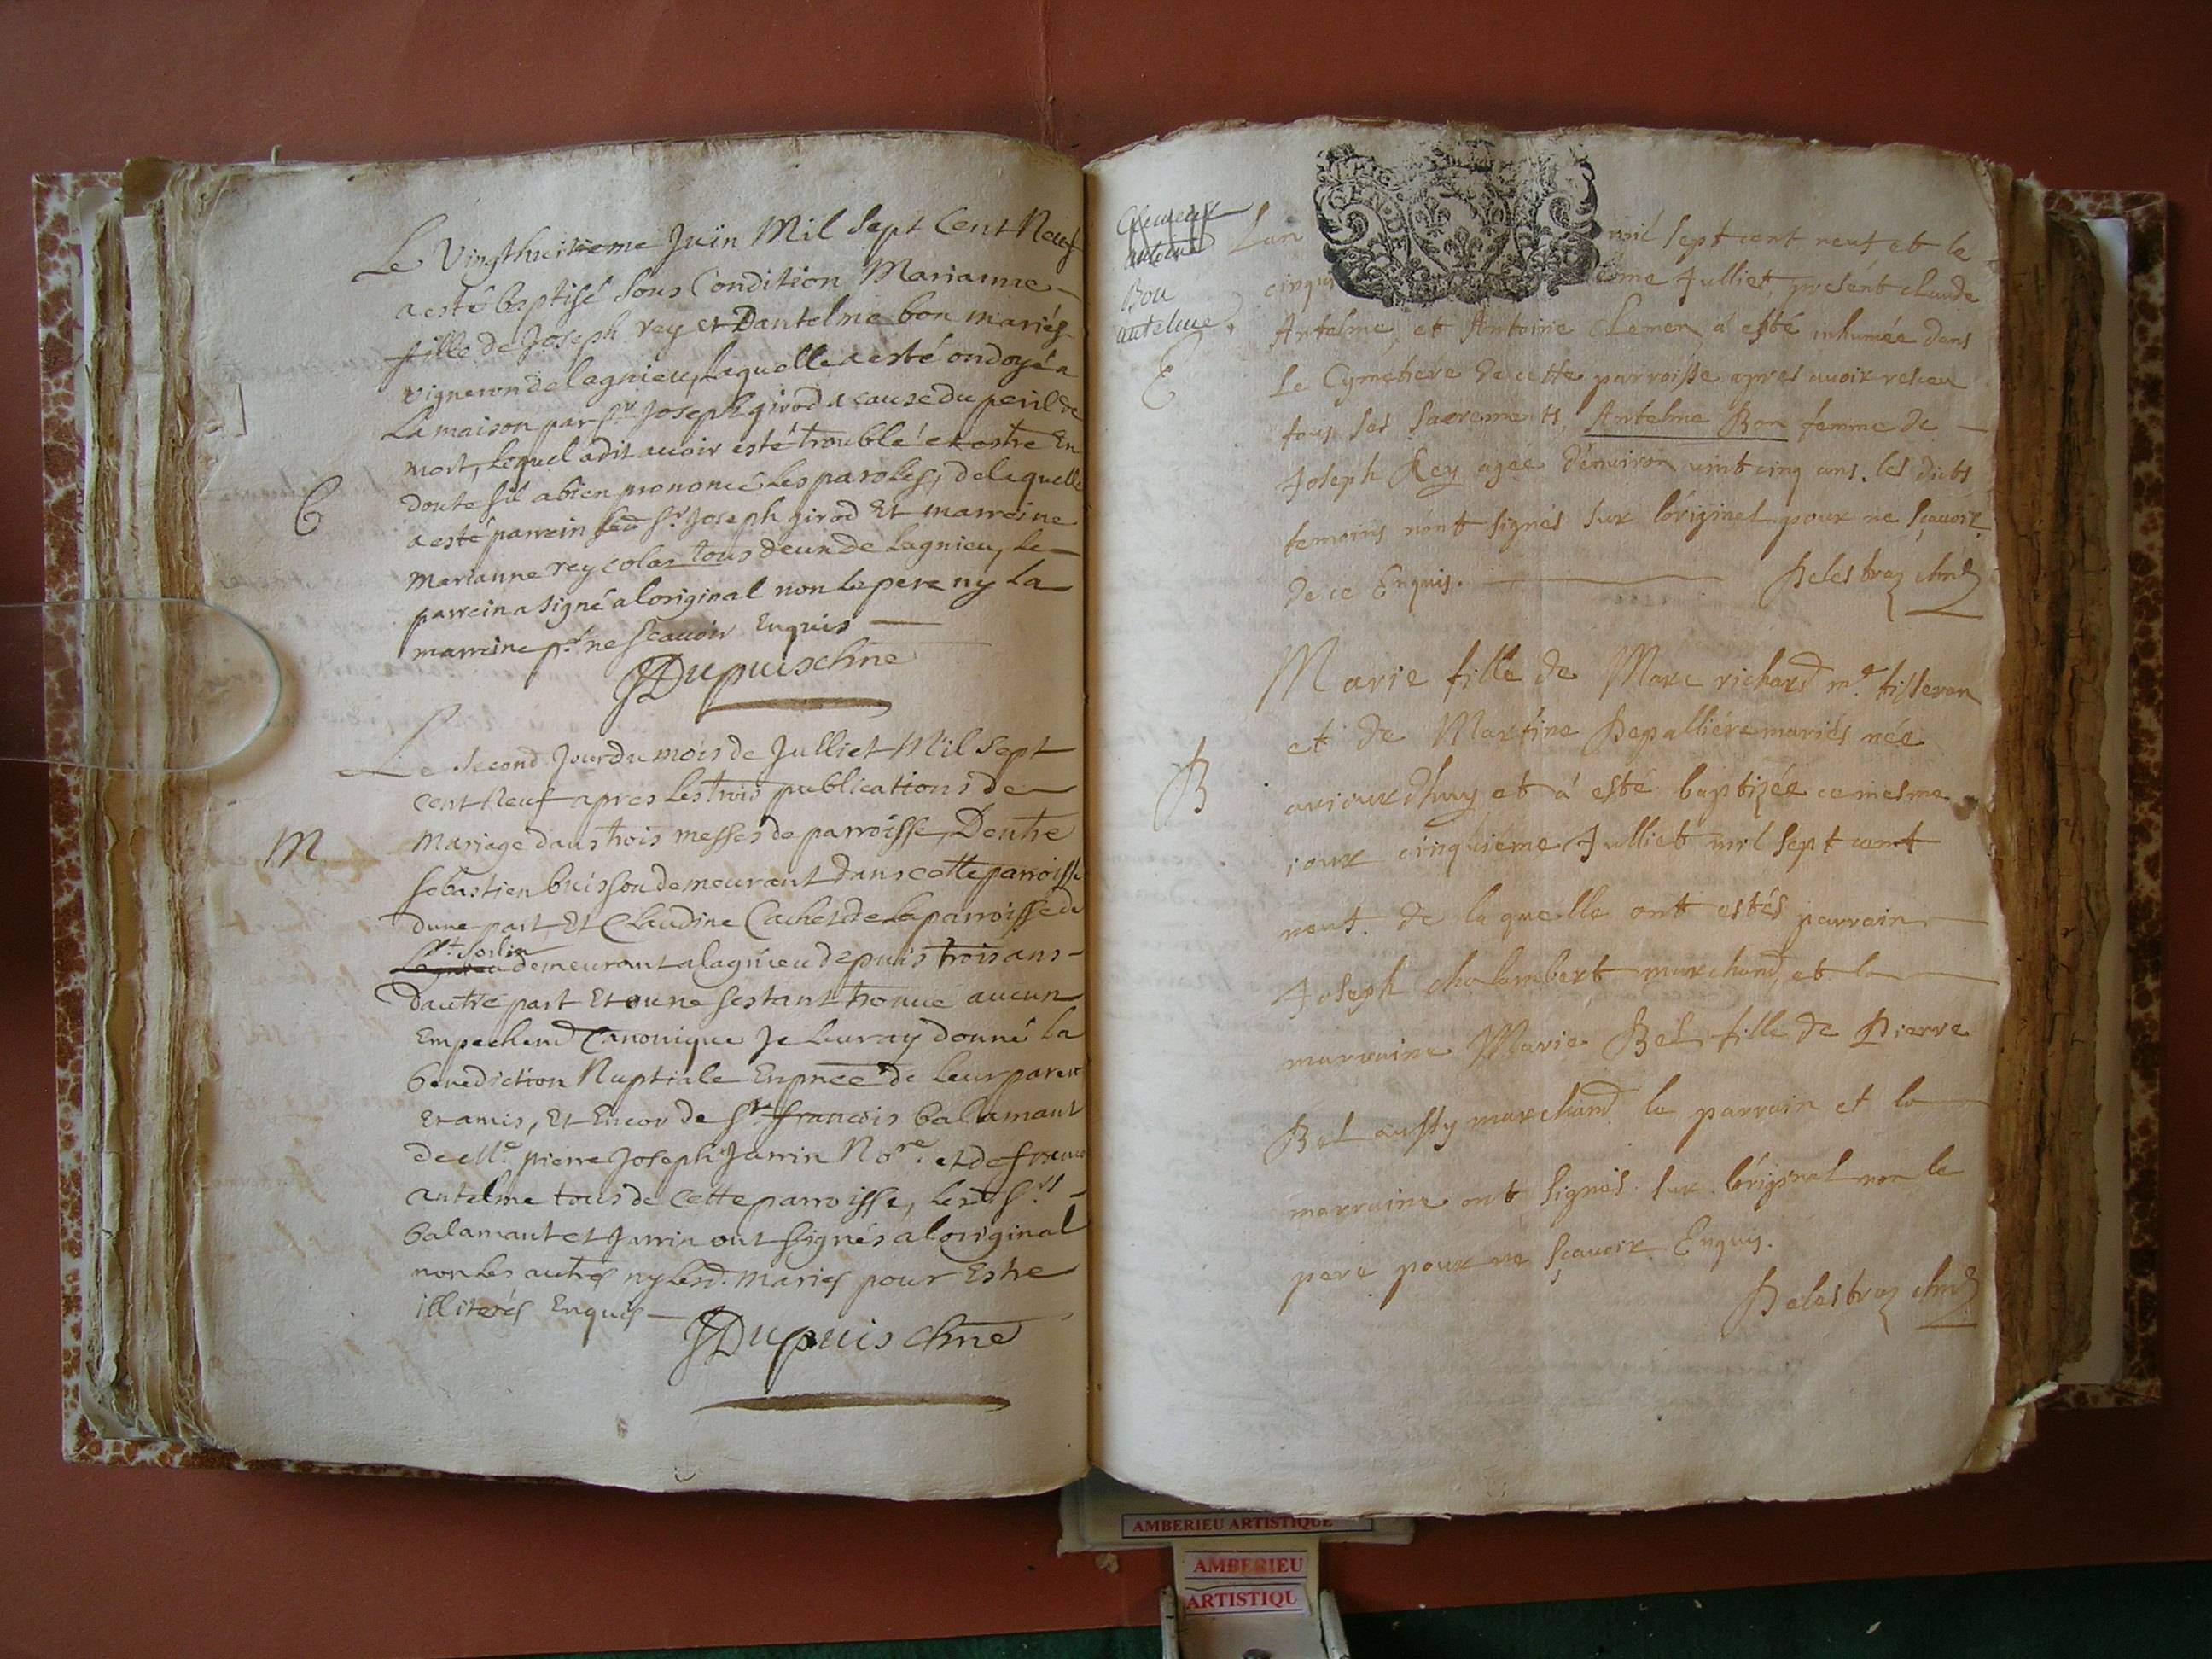 Le Vingthuitieme Juin Mil Sept Cent Neuf
a esté baptisé sous Condition Marianne
fille de Joseph rey et Dantelme bon mariés
vigneron de lagnieu, laquelle a esté ondoyé a
La maison par Sr Joseph girod a cause du peril de
mort, Lequel a dit avoir esté troublé et estre En
doute sil a bien prononcé les paroles, de laquelle
B
a esté parrein led Sr Joseph girod Et marreine
Marianne rey colas tous deux de Lagnieu, le
parrein a signé a loriginal non le pere ny la
marreine pr ne scavoir Enquis
JDupuis chne
Le second Jour du mois de Julliet Mil Sept
Cent Neuf apres les trois publications de
M
Mariage dans trois messes de parroisse, Dentre
Sebastien buisson demeurant dans cette parroisse
dune part Et Claudine Cachet de la parroisse de
St. Sorlin
Lagnieu demeurant a lagnieu depuis trois ans
dautre part Et ou ne sestant trouvé aucun
Empechemt Canonique Je leur ay donné la
benediction Nuptiale En pnce de leur parens
Et amis, Et Encor de Sr francois balamant
de Me. pierre Joseph Jarrin Nore. et de francois
antelme tous de cette parroisse, lesd Srs
balamant et Jarrin ont signés a loriginal
non les autres ny lesd. mariés pour Estre
illiterés Enquis
JDupuis chne
Bon
antelme
E
Lan mil sept cent neuf et le
cinquieme Julliet, présent claude
Antelme, et Antoine Clemen á esté inhumée dans
Le Cymetiere de cette parroisse apres avoir receu
tous ses sacrements, Antelme Bon femme de
Joseph Rey agee d'environ vint cinq ans. les dits
temoins n'ont signés sur l'original pour ne sçavoir
de ce Enquis. Delestraz chne
Marie fille de Marc richard me. tisseran
et de Martine Depalliére mariés née
B
aujourdhuy et á esté baptizée ce mesme
jour cinquiéme Julliet mil sept cent
neuf. de laquelle ont estés parrain
Joseph chalambert marchand, et la
marraine Marie Bel fille de Pierre
Bel aussy marchand le parrain et la
marraine ont signés sur l'original non le
pere pour ne sçavoir Enquis.
Delestraz chne
AMBERIEU ARTISTIQUE
AMBERIEU
ARTISTIQU